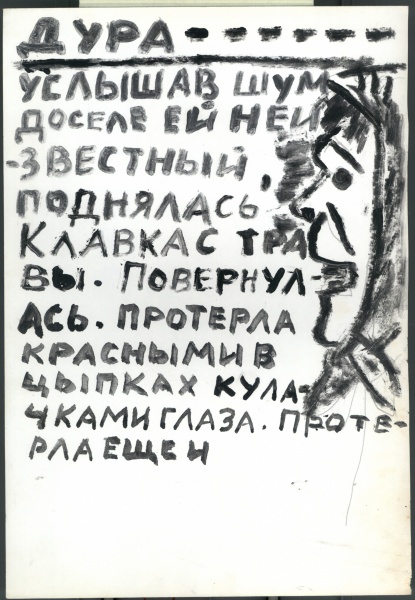 ДУРА - - - - - -
УСЛЫШАВ ШУМ
ДОСЕЛЕ ЕЙ НЕИ
-ЗВЕСТНЫЙ
ПОДНЯЛАСЬ
КЛАВКА С ТРА
ВЫ. ПОВЕРНУЛ-
АСЬ. ПРОТЕРЛА
КРАСНЫМИ В
ЦЫПКАХ КУЛА-
ЧКАМИ ГЛАЗА. ПРОТЕ-
РЛА ЕЩЕ И